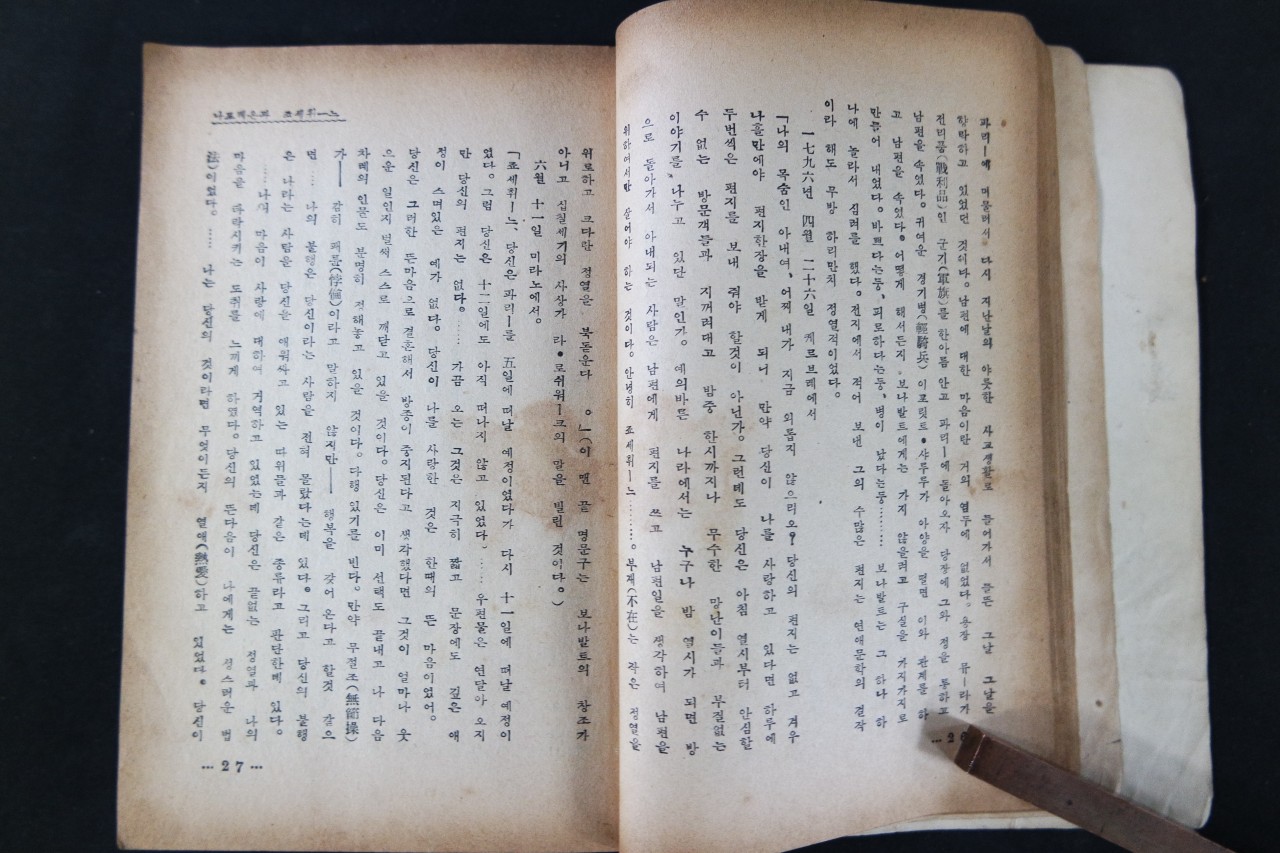 파리―에 머물러서 다시 지난날의 야릇한 사교생활로 들어가서 들든 그날 그날을
향락하고 있었던 것이다。남편에 대한 마음이란 거의 염두에 없었다。용장 뮤―라가
전리품(戰利品)인 군기(軍旗)를 한아름 안고 파리―에 돌아오자 당장에 그와 정을 통하고
남편을 속였다。귀여운 경기병(輕騎兵) 이포릿트•샤루루가 아양을 떨면 이와 관계를 하
고 남편을 속었다。어떻게 해서든지 보나발트에게는 가지 않을려고 구실을 가지가지로
만들어 내었다。바쁘다는둥、피로하다는둥、병이 났다는둥……… 보나발트는 그 하나 하
나에 놀라서 심려를 했다。전지에서 적어 보낸 그의 수많은 편지는 연애문학의 걸작
이라 해도 무방 하리만치 정열적이었다。
一七九六년 四월 二十六일 케르브레에서
「나의 목숨인 아내여、어찌 내가 지금 외롭지 않으리오? 당신의 편지는 없고 겨우
나흘만에야 편지한장을 받게 되니 만약 당신이 나를 사랑하고 있다면 하루에
두번씩은 편지를 보내 줘야 할것이 아닌가。그런데도 당신은 아침 열시부터 안심할
수 없는 방문객들과 지꺼려대고 밤중 한시까지나 무수한 망난이들과 부질없는
이야기를 나누고 있단 말인가。예의바른 나라에서는 누구나 밤 열시가 되면 방
으로 돌아가서 아내되는 사람은 남편에게 편지를 쓰고 남편일을 생각하여 남편을
위하여서만 살어야 하는 것이다。안녕히 조세휘―느………。부재(不在)는 작은 정열을
… 26
나포레온과 조세휘―느
위로하고 크다란 정열을 북돋운다 。」(이 맨 끝 명문구는 보나발트의 창조가
아니고 십칠세기의 사상가 라•로쉬휘―크의 말을 빌린 것이다。)
六월 十一일 미라노에서。
「조세휘―느、당신은 파리―를 五일에 떠날 예정이였다가 다시 十一일에 떠날 예정이
였다。그럼 당신은 十二일에도 아직 떠나지 않고 있었다…… 우편물은 연달아 오지
만 당신의 편지는 없다。…… 가끔 오는 그것은 지극히 짧고 문장에도 깊은 애
정이 스며있은 예가 없다。당신이 나를 사랑한 것은 한때의 뜬 마음이었어。
당신은 그러한 뜬마음으로 결혼해서 방종이 중지된다고 생각했다면 그것이 얼마나 웃
으운 일인지 벌써 스스로 깨닫고 있을 것이다。당신은 이미 선택도 끝내고 나 다음
차례의 인물도 분명히 정해놓고 있을 것이다。다행 있기를 빈다。만약 무절조(無節操)
가―― 감히 패륜(悖倫)이라고 말하지 않지만―― 행복을 갖어 온다고 할것 같으
면…… 나의 불행은 당신이라는 사람을 전혀 몰랐다는데 있다。그리고 당신의 불행
은 나라는 사람을 당신을 애워싸고 있는 따위들과 같은 종류라고 판단한데 있다。
…… 나의 마음이 사랑에 대하여 거역하고 있었는데 당신은 끝없는 정열과 나의
마음을 타락시키는 도취를 느끼게 하였다。당신의 뜬다음이 나에게는 성스러운 법
(法)이었다。…… 나는 당신의 것이라면 무엇이든지 열애(熱愛)하고 있었다。당신이
… 27 …